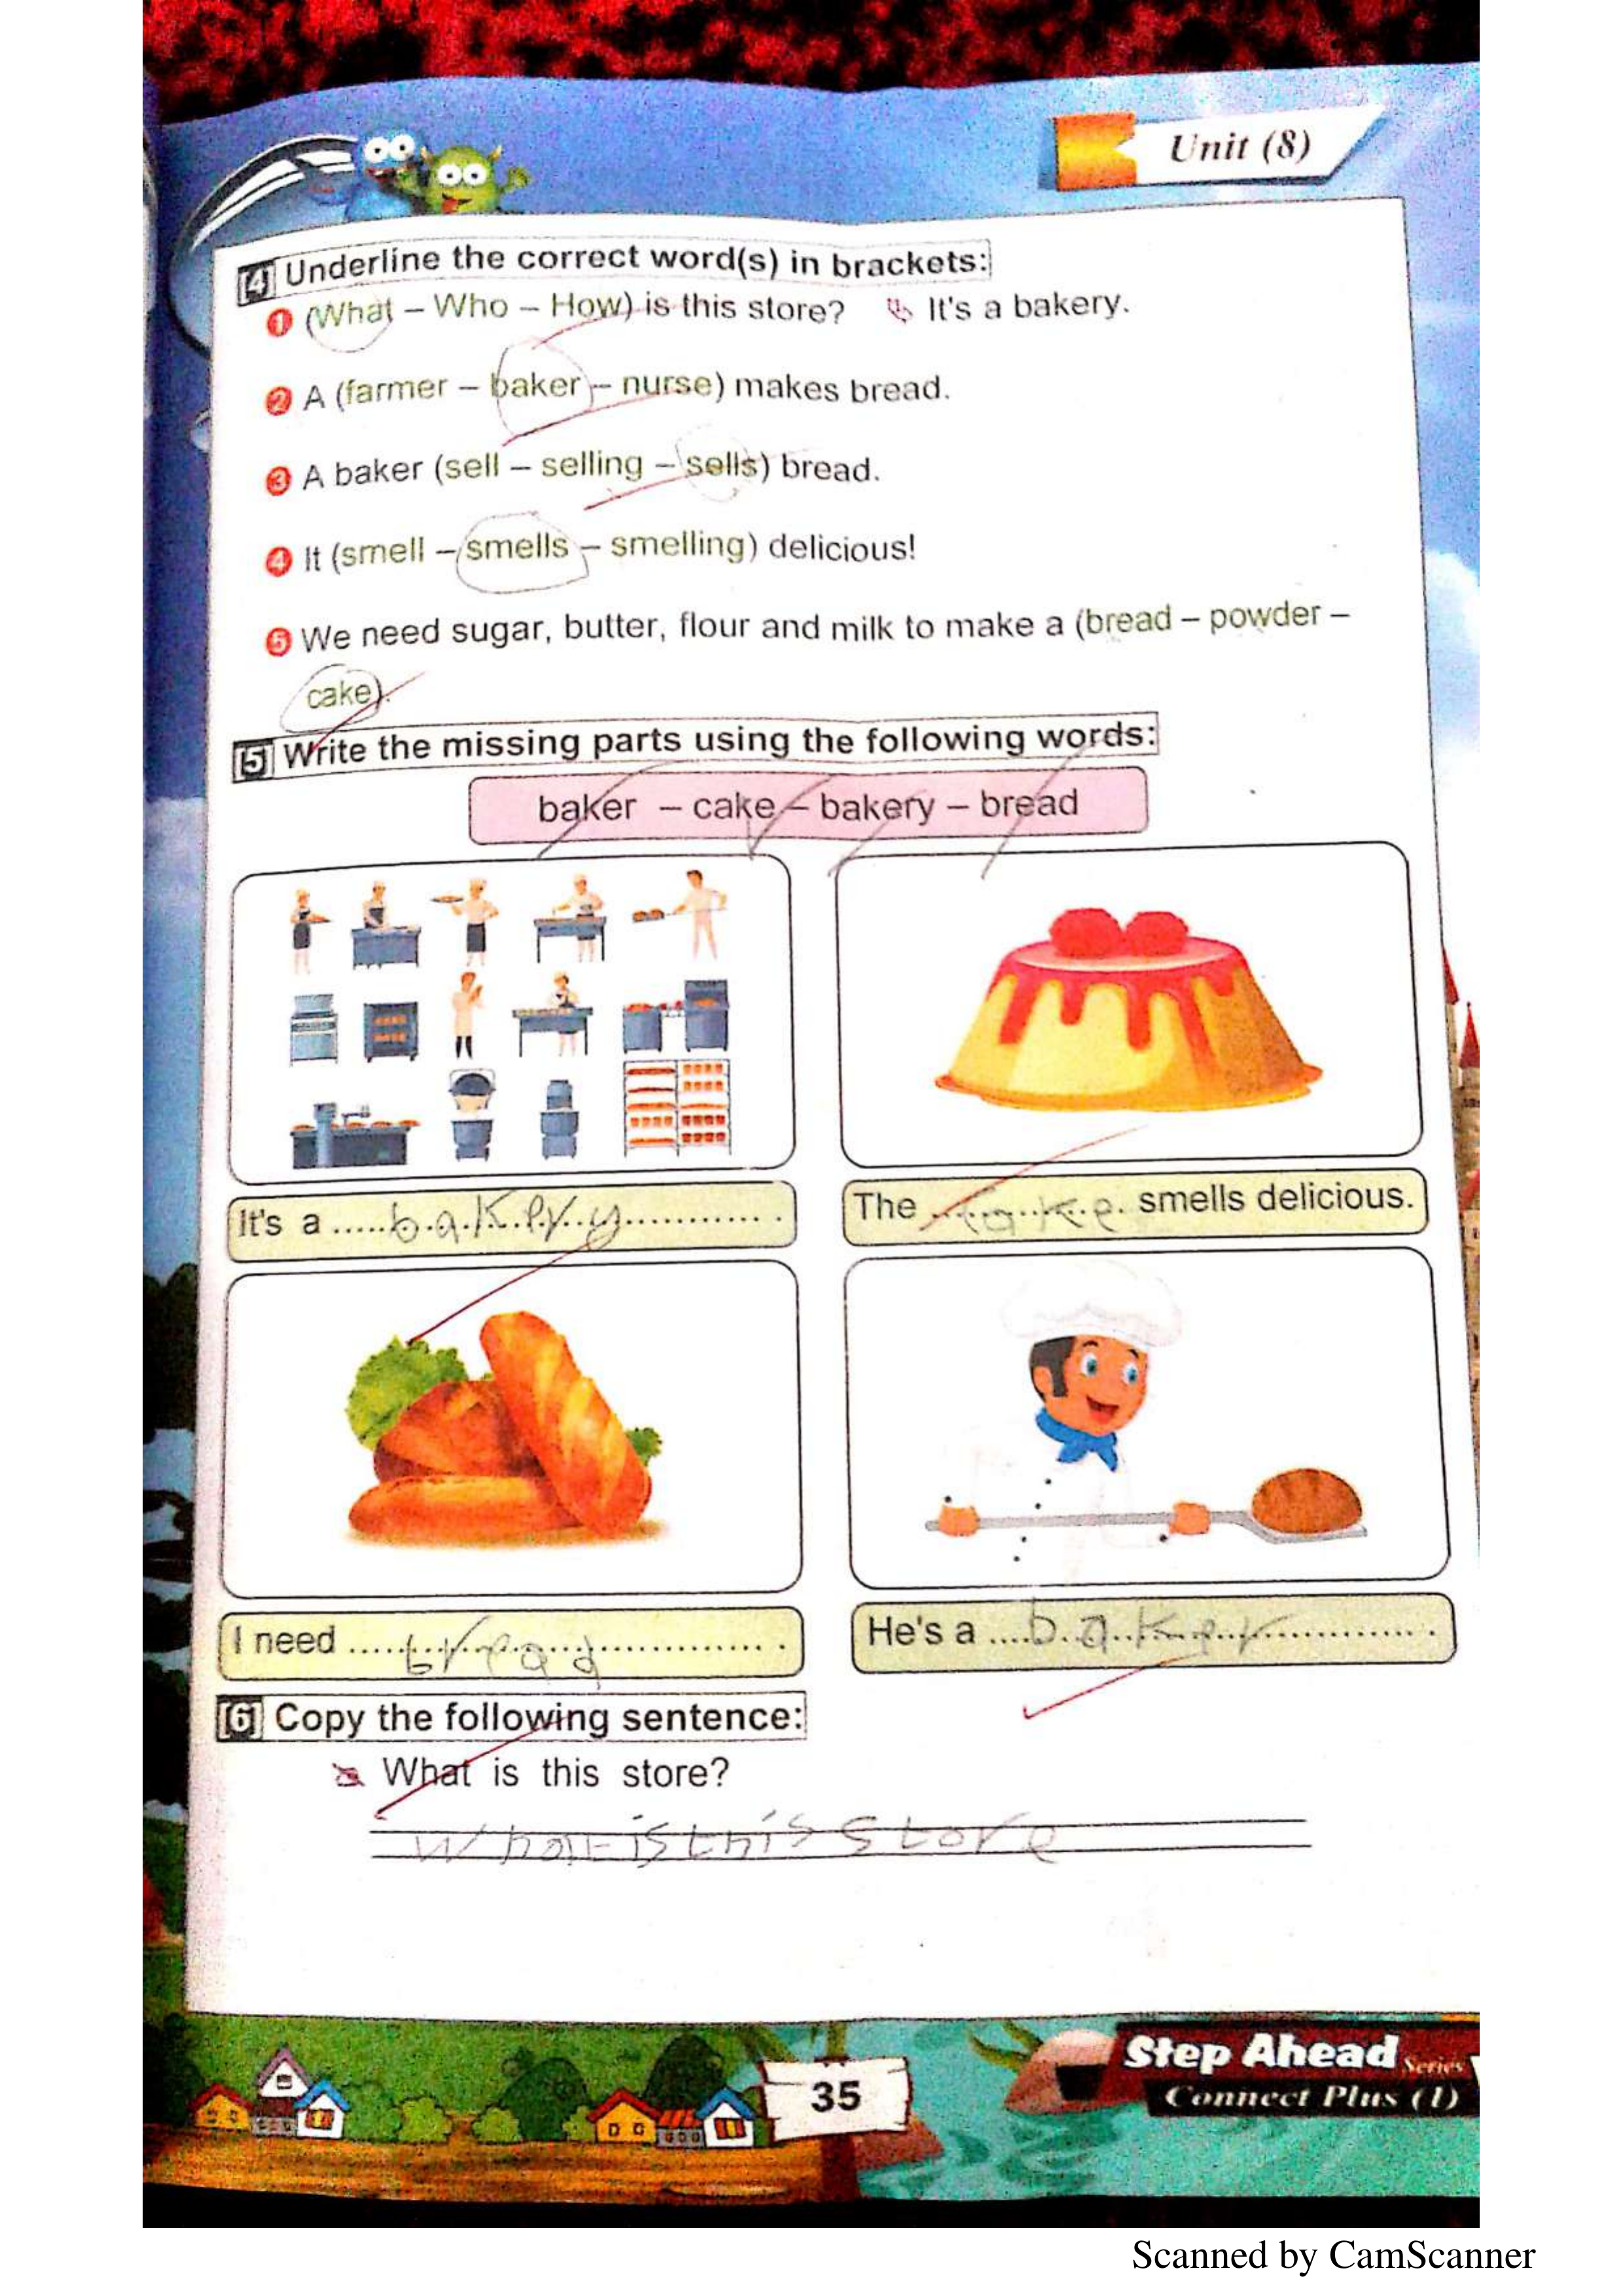 Unit (8)
[4] Underline the correct word(s) in brackets:
1 (What – Who – How) is this store? It's a bakery.
2 A (farmer – baker – nurse) makes bread.
3 A baker (sell – selling – sells) bread.
4 It (smell – smells – smelling) delicious!
5 We need sugar, butter, flour and milk to make a (bread – powder –
cake).
[5] Write the missing parts using the following words:
baker – cake – bakery – bread
It's a ......bakery............. .
The ....cake.. smells delicious.
I need ......bread................. .
He's a ....baker............... .
[6] Copy the following sentence:
What is this store?
What is this store
35
Step Ahead Series
Connect Plus (1)
Scanned by CamScanner